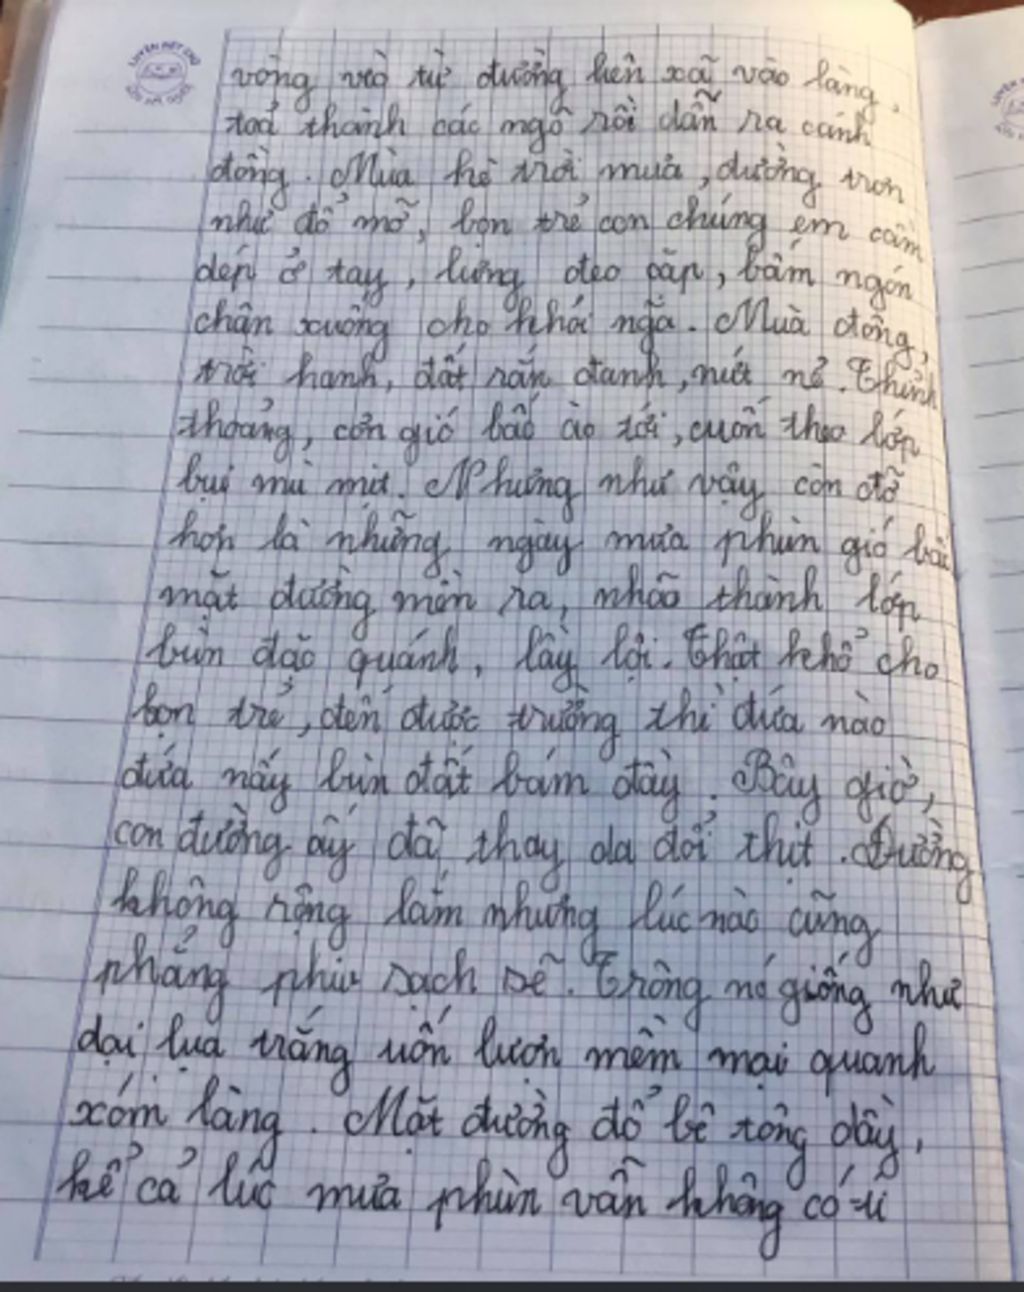 vòng vèo từ đường liên xã vào làng,
toả thành các ngõ rồi dẫn ra cánh
đồng. Mùa hè trời mưa, đường trơn
như đổ mỡ, bọn trẻ con chúng em cầm
dép ở tay, lưng đeo cặp, bấm ngón
chân xuống cho khỏi ngã. Mùa đông,
trời hanh, đất rắn đanh, nứt nẻ. Thỉnh
thoảng, cơn gió bấc ào tới, cuốn theo lớp
bụi mù mịt. Nhưng như vậy còn đỡ
hơn là những ngày mưa phùn gió bấc
mặt đường mòn ra, nhão thành lớp
bùn đặc quánh, lầy lội. Thật khổ cho
bọn trẻ, đến được trường thì đứa nào
đứa nấy bùn đất bám đầy. Bây giờ,
con đường ấy đã thay da đổi thịt. Đường
không rộng lắm nhưng lúc nào cũng
phẳng phiu sạch sẽ. Trông nó giống như
dải lụa trắng uốn lượn mềm mại quanh
xóm làng. Mặt đường đổ bê tông dày,
kể cả lúc mưa phùn vẫn không có tí